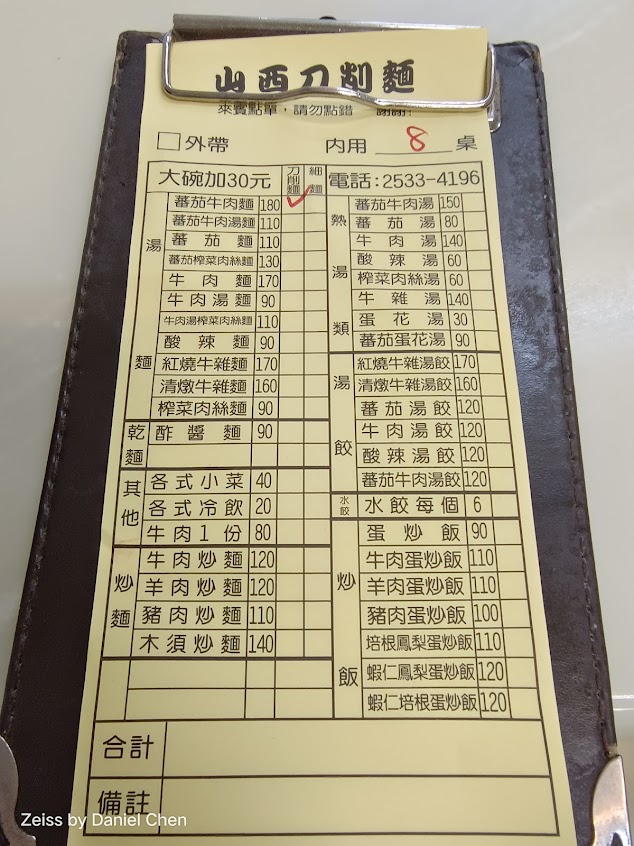 山西刀削麵
來賓點單，請勿點錯 謝謝!
外帶 內用 8 桌
大碗加30元 刀削麵 細麵 電話:2533-4196
湯麵
番茄牛肉麵 180
番茄牛肉湯麵 110
蕃茄麵 110
蕃茄榨菜肉絲麵 130
牛肉麵 170
牛肉湯麵 90
牛肉湯榨菜肉絲麵 110
酸辣麵 90
紅燒牛雜麵 170
清燉牛雜麵 160
榨菜肉絲麵 90
乾麵
酢醬麵 90
其他
各式小菜 40
各式冷飲 20
牛肉1份 80
炒麵
牛肉炒麵 120
羊肉炒麵 120
豬肉炒麵 110
木須炒麵 140
熱湯類
蕃茄牛肉湯 150
蕃茄湯 80
牛肉湯 140
酸辣湯 60
榨菜肉絲湯 60
牛雜湯 140
蛋花湯 30
蕃茄蛋花湯 90
湯餃
紅燒牛雜湯餃 170
清燉牛雜湯餃 160
蕃茄湯餃 120
牛肉湯餃 120
酸辣湯餃 120
蕃茄牛肉湯餃 120
水餃
水餃每個 6
炒飯
蛋炒飯 90
牛肉蛋炒飯 110
羊肉蛋炒飯 110
豬肉蛋炒飯 100
培根鳳梨蛋炒飯 110
蝦仁鳳梨蛋炒飯 120
蝦仁培根蛋炒飯 120
合計
備註
Zeiss by Daniel Chen